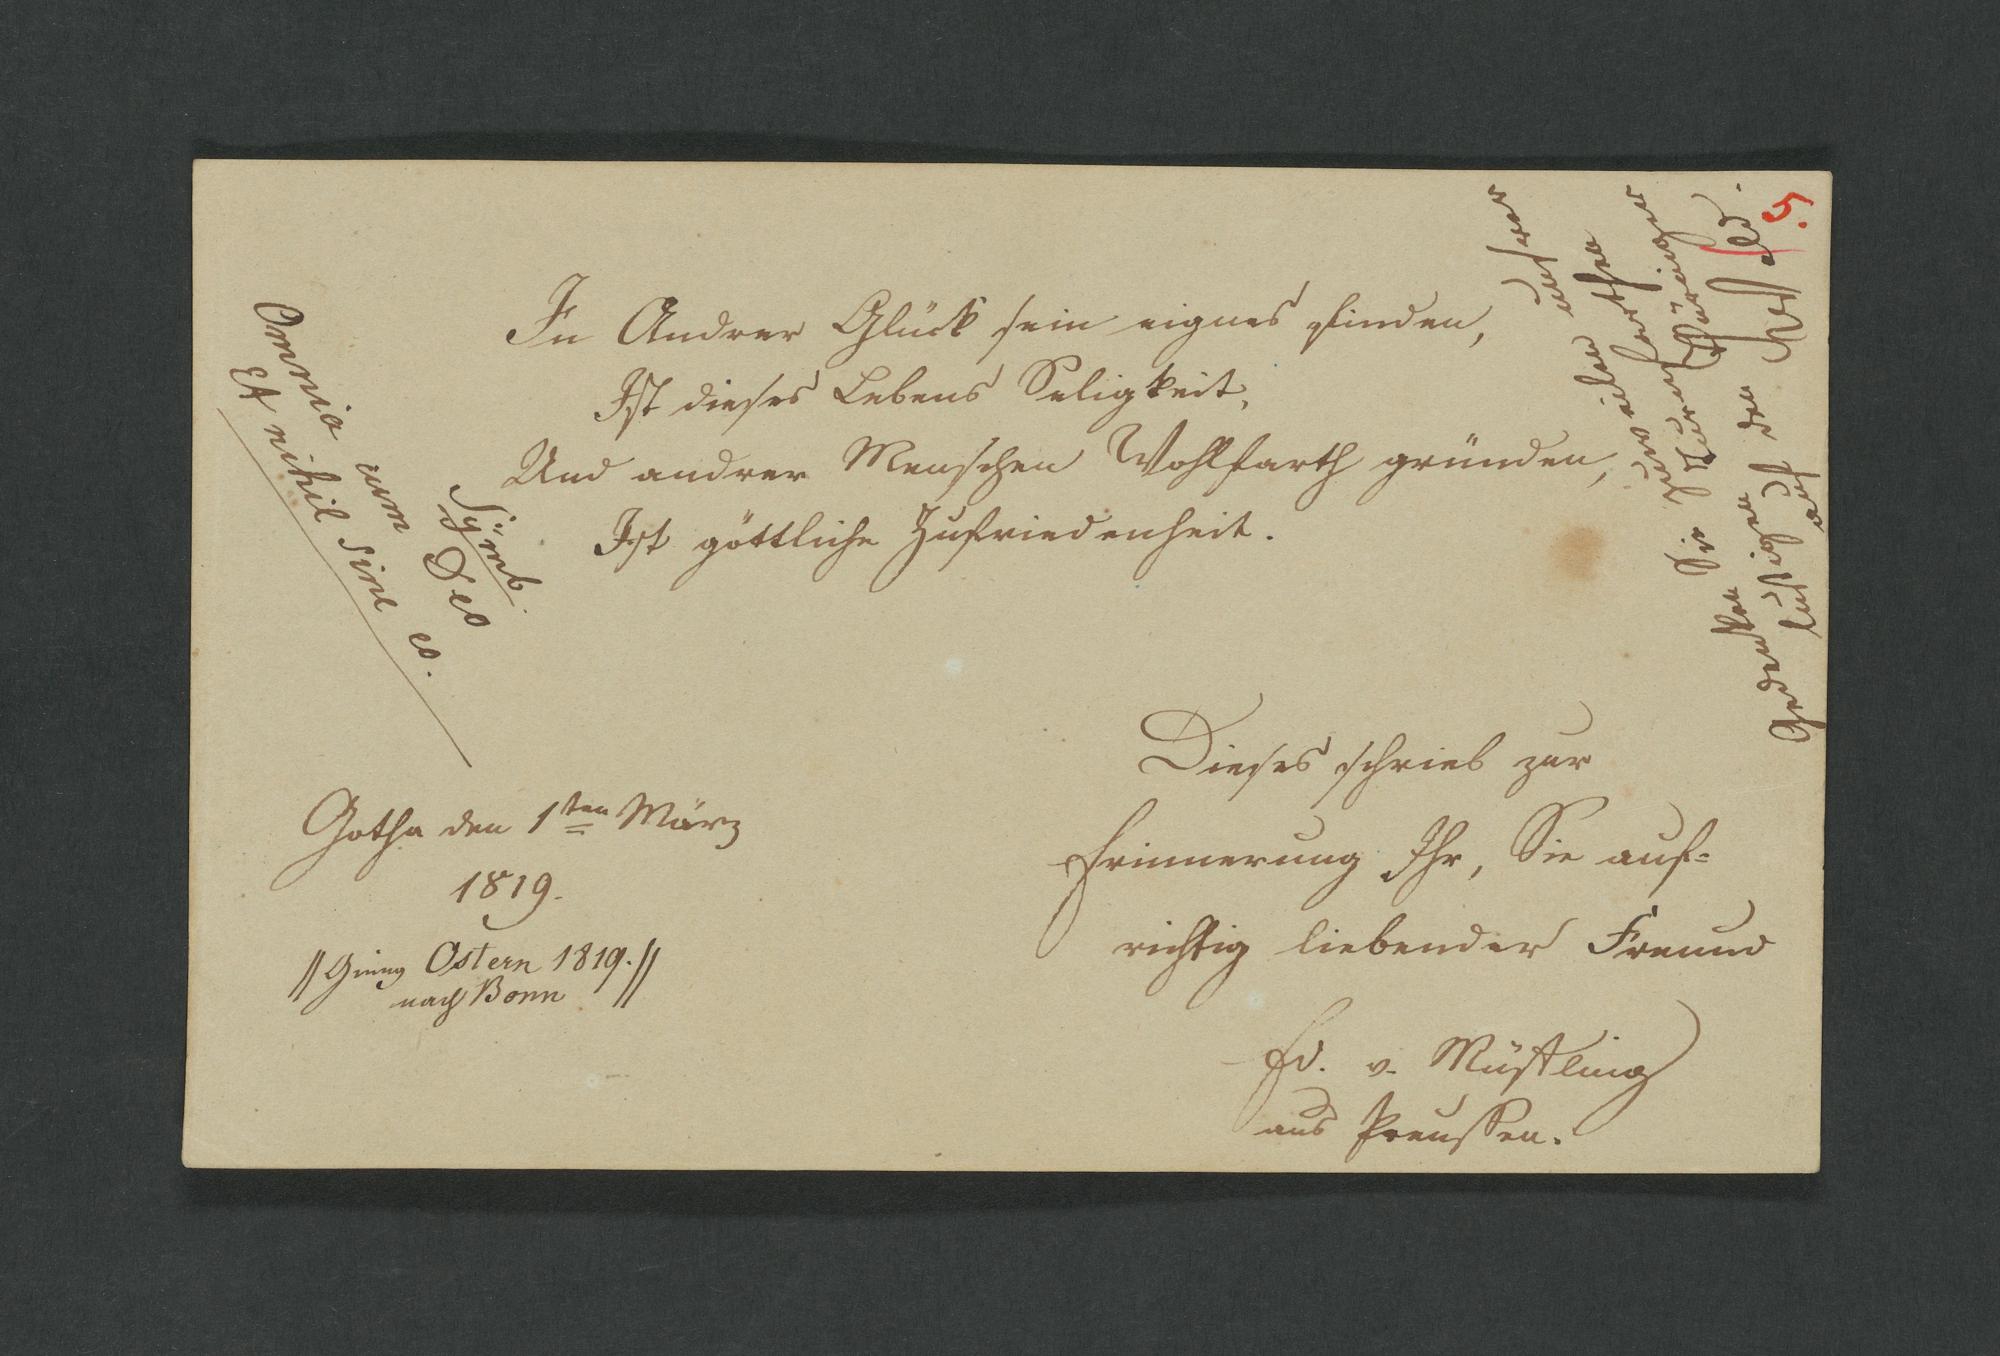 5.
In Andrer Glück sein eignes finden,
Ist dieses Lebens Seligkeit,
Und andrer Menschen Wohlfarth gründen,
Ist göttliche Zufriedenheit.
Symb.
Omnia cum Deo
Et nihil sine eo.
Gedenken Sie zuweilen unsrer
auf den
Dieses schrieb zur
Erinnerung Ihr, Sie auf-
richtig liebender Freund
Ed. v. Müffling
aus Preussen.
Gotha den 1ten März
1819.
// Ging Ostern 1819. //
nach Bonn